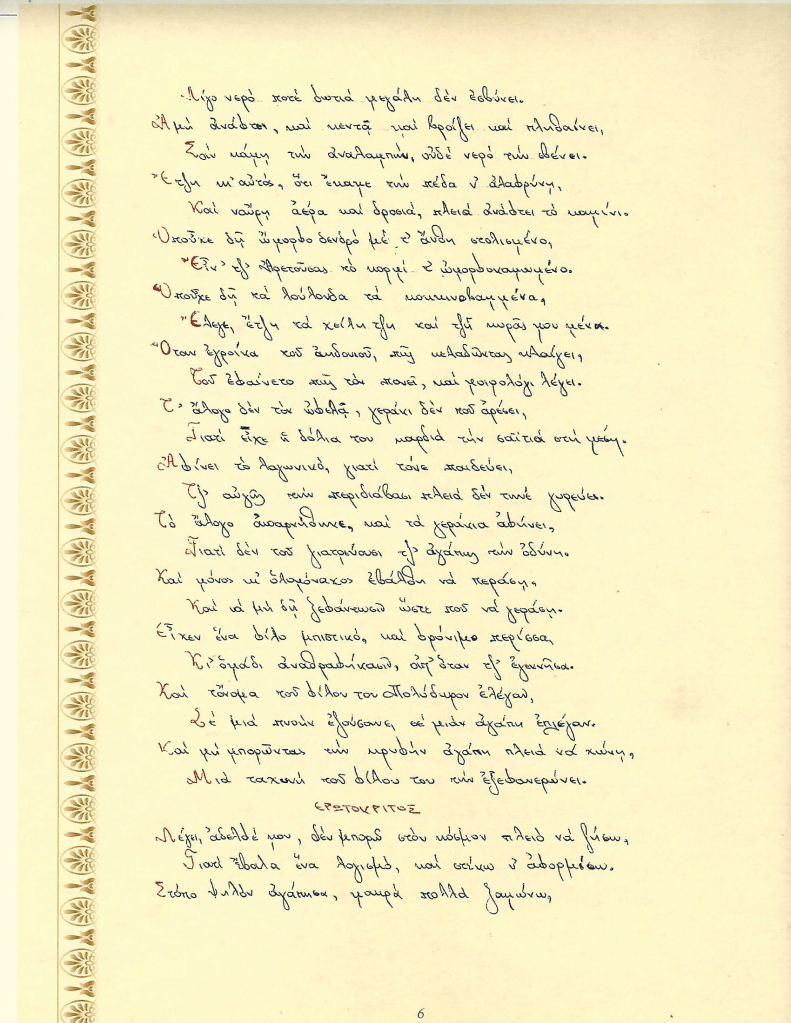 Λίγο νερό ποτέ φωτιά μεγάλη δέν ἐσβύνει.
Ἀμή ἀνάφτει, καί κεντᾷ καί βράζει καί πληθαίνει,
Σάν κάμῃ τήν ἀναλαμπήν, οὐδέ νερό τήν σβένει.
Ἔτζη κ' αὐτός, ὅτι ἔκαμε τήν πέδα ν' ἀλαφρύνῃ,
Καί ναὔρῃ ἀέρα καί δροσιά, πλειά ἀνάφτει τό καμίνι.
Ὁποὖχε δῇ ὤμορφο δενδρό μέ τ' ἄνθη στολισμένο,
Ἔν' τζ' Ἀρετούσας τό κορμί τ' ὠμορφοκαμωμένο.
Ὁποὖχε δῇ τά λούλουδα τά κοκκινοβαμμένα,
Ἔλεγε, ἔτζη τά χείλη τζη καί τζῆ κυρᾶς μου μένα.
Ὅταν ἐγροίκα τοῦ ἀηδονιοῦ, πῶς κελαδῶντας κλαίγει,
Τοῦ ἐφαίνετο πῶς τόν πονεῖ, καί μοιρολόγι λέγει.
Τ' ἄλογο δέν τόν ὠφελᾷ, γεράκι δέν τοῦ ἀρέσει,
Γιατί εἶχε ἡ δόλια του καρδιά τήν σαϊτιά στή μέση.
Ἀφίνει τό λαγωνικό, γιατί τόνε παιδεύει,
Τζ' αὐγῆς τήν περιδιάβασι πλειά δέν τηνέ γυρεύει.
Τό ἄλογο ἀπαρνήθηκε, καί τά γεράκια ἀφίνει,
Γιατί δέν τοῦ γιατρεύουσι τζ' ἀγάπης τήν ὀδύνη.
Καί μόνος κ' ὁλομόναχος ἐβάλθη νά περάσῃ,
Καί νά μή δῇ ξεφάντωσιν ὥστε ποῦ νά γεράσῃ.
Εἶχεν ἕνα φίλο μπιστικό, καί φρόνιμο περίσσα,
Κι' ὁμάδι ἀναθραφήκασιν, ἀπ' ὅταν τζ' ἐγεννῆσα.
Καί τὄνομα τοῦ φίλου του Πολύδωρον ἐλέγαν,
Σέ μιά πνοήν ἐζούσανε, σέ μιάν ἀγάπη ἐπλέγαν.
Καί μή μπορῶντας τήν κρυφήν ἀγάπη πλειά νά χώνῃ,
Μιά ταχυνή τοῦ φίλου του τήν ἐξεφανερώνει.
ΕΡΩΤΟΚΡΙΤΟΣ
Λέγει, ἀδελφέ μου, δέν μπορῶ στόν κόσμον πλειό νά ζήσω,
Γιατί ἔβαλα ἕνα λογισμό, καί στέκω ν' ἀφορμίσω.
Στόπο ψηλόν ἀγάπησα, μακρά πολλά ξαμώνω,
6